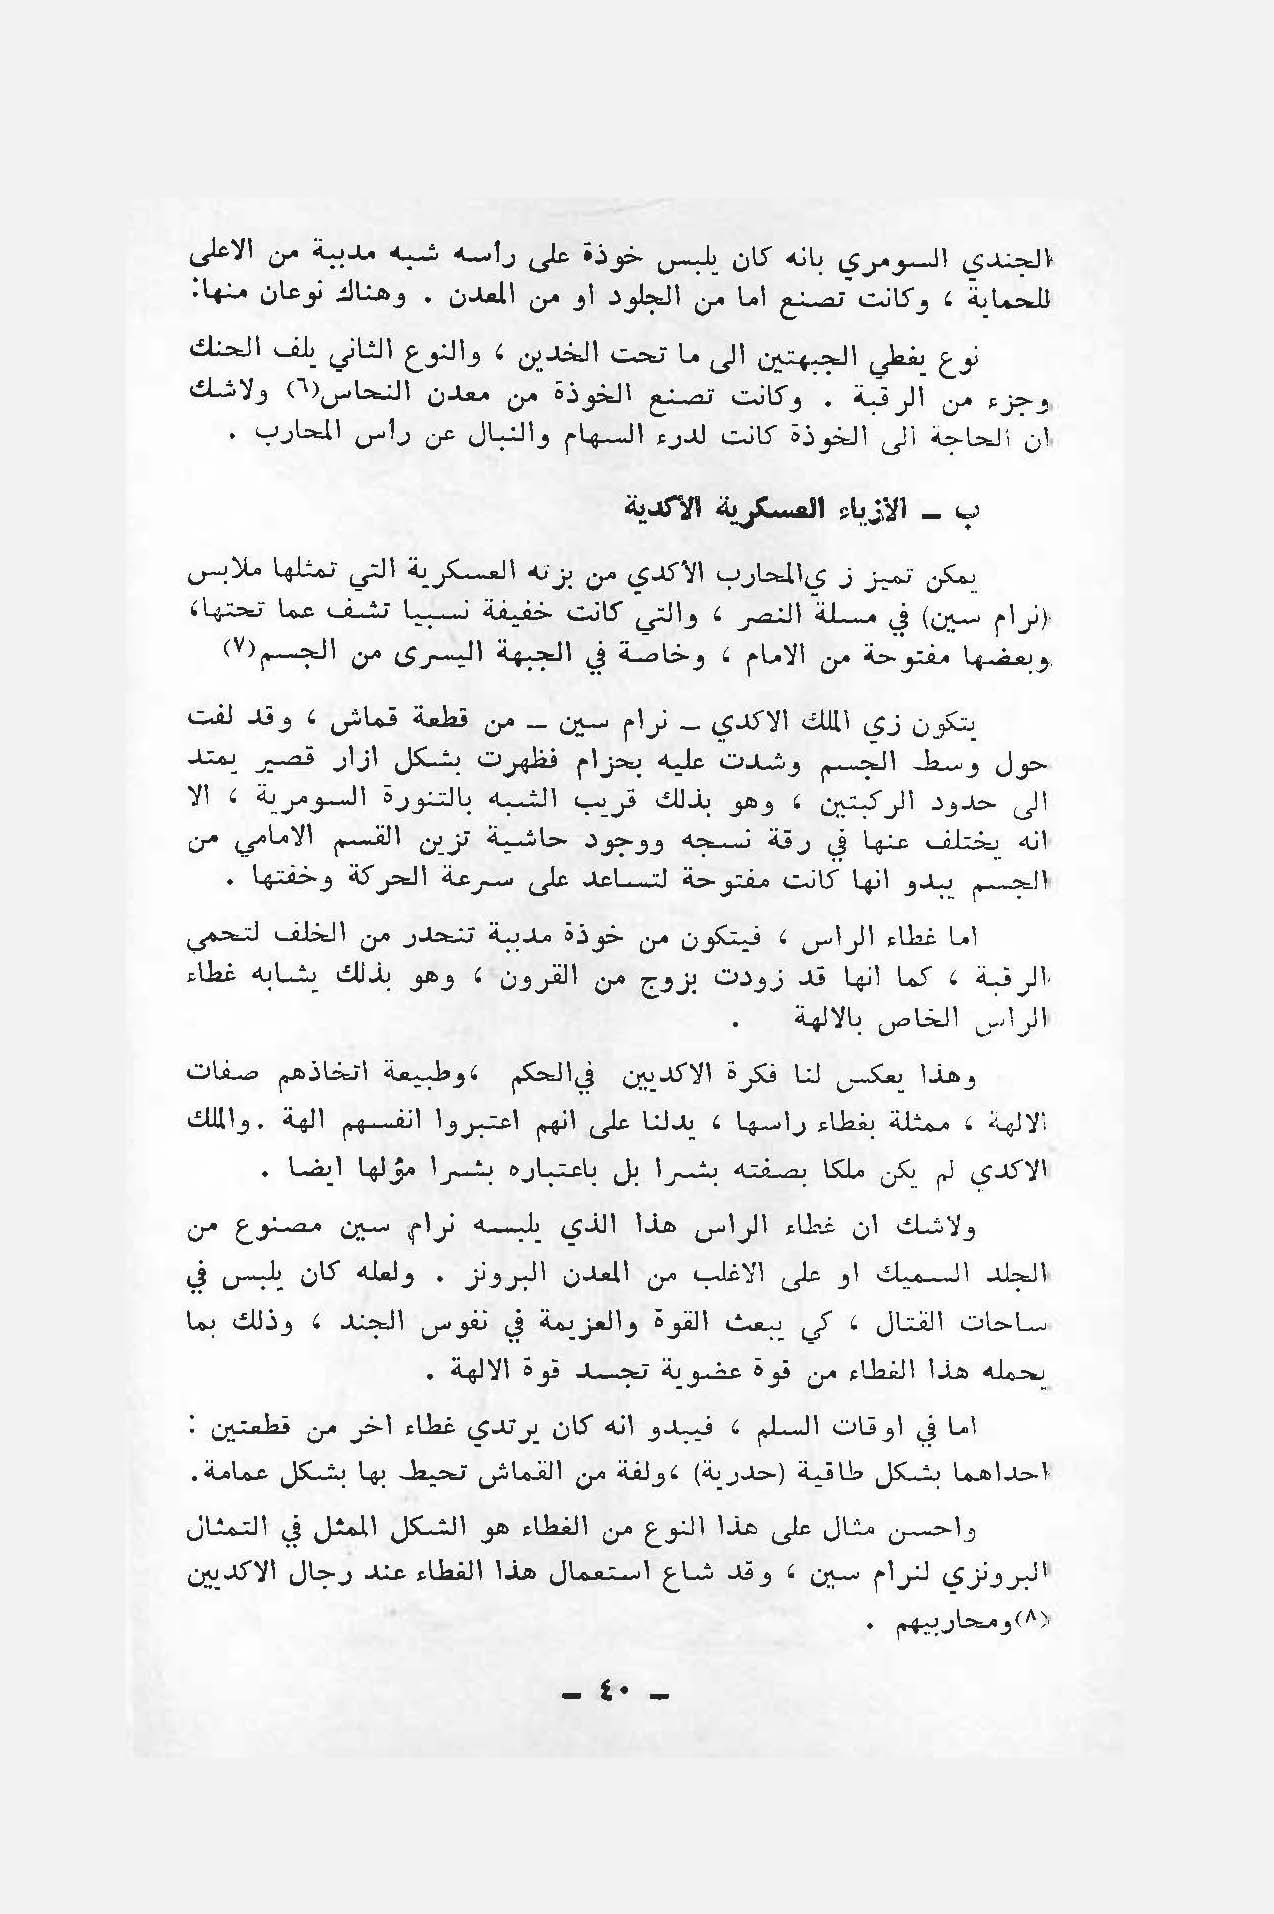 الجندي السومري بانه كان يلبس خوذة على رأسه شبه مدببة من الاعلى
للحماية ، وكانت تصنع اما من الجلود او من المعدن . وهناك نوعان منها:
نوع يغطي الجبهتين الى ما تحت الخدين ، والنوع الثاني يلف الحنك
وجزء من الرقبة . وكانت تصنع الخوذة من معدن النحاس(٦) ولاشك
ان الحاجة الى الخوذة كانت لدرء السهام والنبال عن رأس المحارب .
ب ــ الازياء العسكرية الأكدية
يمكن تميز ز يالمحارب الأكدي من بزته العسكرية التي تمثلها ملابس
(نرام سين) في مسلة النصر ، والتي كانت خفيفة نسبيا تشف عما تحتها،
وبعضها مفتوحة من الامام ، وخاصة في الجبهة اليسرى من الجسم(٧)
يتكون زي الملك الاكدي ــ نرام سين ــ من قطعة قماش ، وقد لفت
حول وسط الجسم وشدت عليه بحزام فظهرت بشكل ازار قصير يمتد
الى حدود الركبتين ، وهو بذلك قريب الشبه بالتنورة السومرية ، الا
انه يختلف عنها في رقة نسجه ووجود حاشية تزين القسم الامامي من
الجسم يبدو انها كانت مفتوحة لتساعد على سرعة الحركة وخفتها .
اما غطاء الراس ، فيتكون من خوذة مدببة تنحدر من الخلف لتحمي
الرقبة ، كما انها قد زودت بزوج من القرون ، وهو بذلك يشابه غطاء
الراس الخاص بالالهة .
وهذا يعكس لنا فكرة الاكديين فيالحكم ،وطبيعة اتخاذهم صفات
الالهة ، ممثلة بغطاء راسها ، يدلنا على انهم اعتبروا انفسهم الهة .والملك
الاكدي لم يكن ملكا بصفته بشرا بل باعتباره بشرا مؤلها ايضا .
ولاشك ان غطاء الراس هذا الذي يلبسه نرام سين مصنوع من
الجلد السميك او على الاغلب من المعدن البرونز . ولعله كان يلبس في
ساحات القتال ، كي يبعث القوة والعزيمة في نفوس الجند ، وذلك بما
يحمله هذا الغطاء من قوة عضوية تجسد قوة الالهة .
اما في اوقات السلم ، فيبدو انه كان يرتدي غطاء اخر من قطعتين :
احداهما بشكل طاقية (حدرية) ،ولفة من القماش تحيط بها بشكل عمامة.
واحسن مثال على هذا النوع من الغطاء هو الشكل الممثل في التمثال
البرونزي لنرام سين ، وقد شاع استعمال هذا الغطاء عند رجال الاكديين
(٨)ومحاربيهم .
ــ ٤٠ ــ